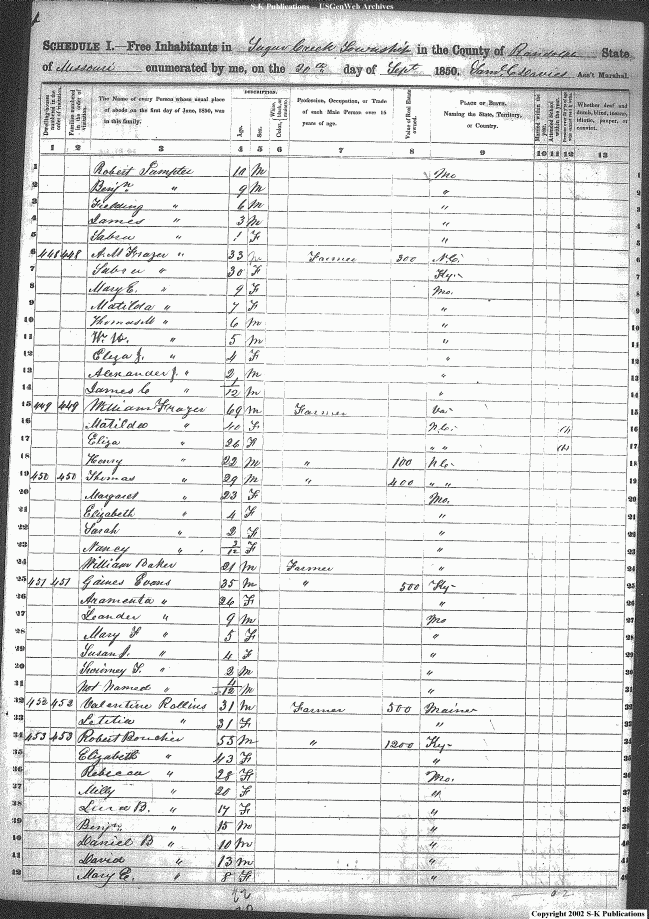 S-K Publications - USGenWeb Archives
SCHEDULE I.—Free Inhabitants in Sugar Creek Township in the County of Randolph State
of Missouri enumerated by me, on the 20th day of Sept 1850. Ass't Marshal.
Dwelling-houses numbered in the order of visitation. Families numbered in the order of visitation. The Name of every Person whose usual place of abode on the first day of June, 1850, was in this family. DESCRIPTION. Age. Sex. Color Profession, Occupation, or Trade of each Male Person over 15 years of age. Value of Real Estate owned. PLACE OF BIRTH. Naming the State, Territory, or Country. Married within the year. Attended School within the year. Whether deaf and dumb, blind, insane, idiotic, pauper, or convict.
1 2 3 4 5 6 7 8 9 10 11 12 13
1 Robert 10 M Mo 1
2 Benjn " 9 M " 2
3 Fielding " 6 M " 3
4 James " 3 M " 4
5 Sabra " 1 F " 5
6 448 448 A. M Frazer " 33 M Farmer 300 N.C. 6
7 Sabra " 30 F Ky- 7
8 Mary E. " 9 F Mo. 8
9 Matilda " 7 F " 9
10 Thomas M " 6 M " 10
11 " 5 M " 11
12 Eliza J. " 4 F " 12
13 Alexander J. " 2 M " 13
14 James C " 1/12 M " 14
15 449 449 William Frazer 69 M Farmer Va- 15
16 Matilda " 40 F N.C- 16
17 Eliza " 26 F " " 17
18 Henry " 22 M " 100 N.C- 18
19 450 450 Thomas " 29 M " 400 " " 19
20 Margaret " 23 F Mo. 20
21 Elizabeth " 4 F " 21
22 Sarah " 2 F " 22
23 Nancy " 3/12 F " 23
24 William Baker 21 M Farmer " 24
25 451 451 Gaines Evans 35 M " 500 Ky- 25
26 Aramenta " 26 F " 26
27 Leander " 9 M Mo 27
28 Mary F " 5 F " 28
29 Susan J. " 4 F " 29
30 " 2 M " 30
31 Not Named " 4/12 M " 31
32 452 452 Valentine Rollins 31 M Farmer 300 Maine 32
33 Letitia " 31 F " 33
34 453 453 Robert Boucher 55 M " 1200 Ky- 34
35 Elizabeth " 43 F " 35
36 Rebecca " 28 F Mo. 36
37 Milly " 20 F " 37
38 B. " 17 F " 38
39 Benjn " 15 M " 39
40 Daniel B " 10 M " 40
41 David " 13 M " 41
42 Mary E. " 8 F " 42
Copyright 2002 S-K Publications